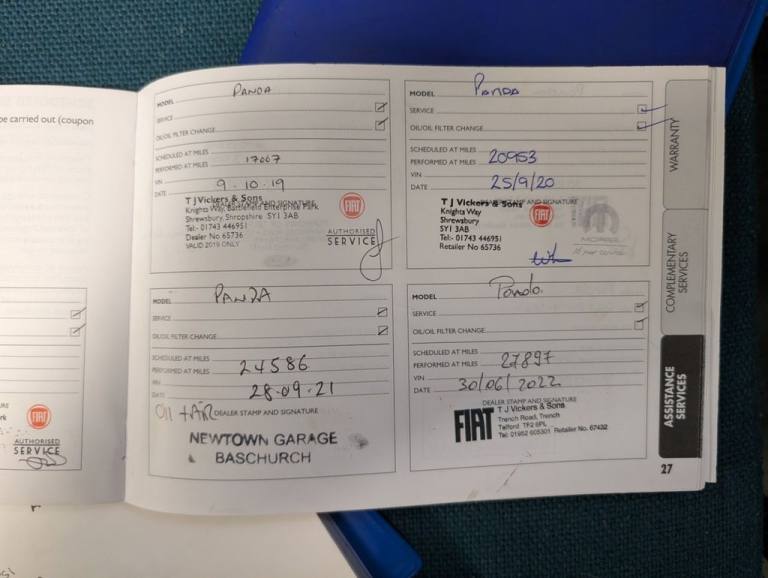 be carried out (coupon
MODEL PANDA
SERVICE
OIL/OIL FILTER CHANGE
SCHEDULED AT MILES
PERFORMED AT MILES 17007
VIN
DATE 9.10.19
DEALER STAMP AND SIGNATURE
T J Vickers & Sons
Knights Way, Battlefield Enterprise Park
Shrewsbury, Shropshire SY1 3AB
Tel:- 01743 446951
Dealer No 65736
VALID 2019 ONLY
FIAT
AUTHORISED
SERVICE
MODEL Panda
SERVICE
OIL/OIL FILTER CHANGE
SCHEDULED AT MILES
PERFORMED AT MILES 20953
VIN
DATE 25/9/20
DEALER STAMP AND SIGNATURE
T J Vickers & Sons
Knights Way
Shrewsbury
SY1 3AB
Tel:- 01743 446951
Retailer No 65736
FIAT
MOPAR
MODEL PANDA
SERVICE
OIL/OIL FILTER CHANGE
SCHEDULED AT MILES
PERFORMED AT MILES 24586
VIN
DATE 28.09.21
Oil + AIR DEALER STAMP AND SIGNATURE
NEWTOWN GARAGE
BASCHURCH
MODEL Panda
SERVICE
OIL/OIL FILTER CHANGE
SCHEDULED AT MILES
PERFORMED AT MILES 27897
VIN
DATE 30/06/2022
DEALER STAMP AND SIGNATURE
FIAT T J Vickers & Sons
Trench Road, Trench
Telford TF2 6PL
Tel: 01952 605301 Retailer No. 67432
FIAT
AUTHORISED
SERVICE
WARRANTY
COMPLEMENTARY
SERVICES
ASSISTANCE
SERVICES
27